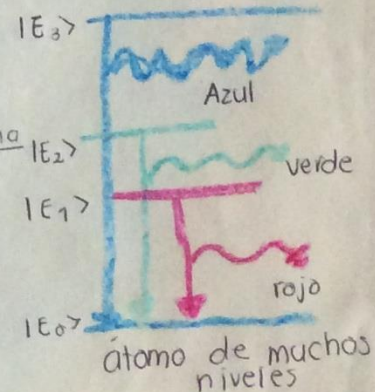 |E₃>
Azul
|E₂>
verde
|E₁>
rojo
|E₀>
átomo de muchos
niveles